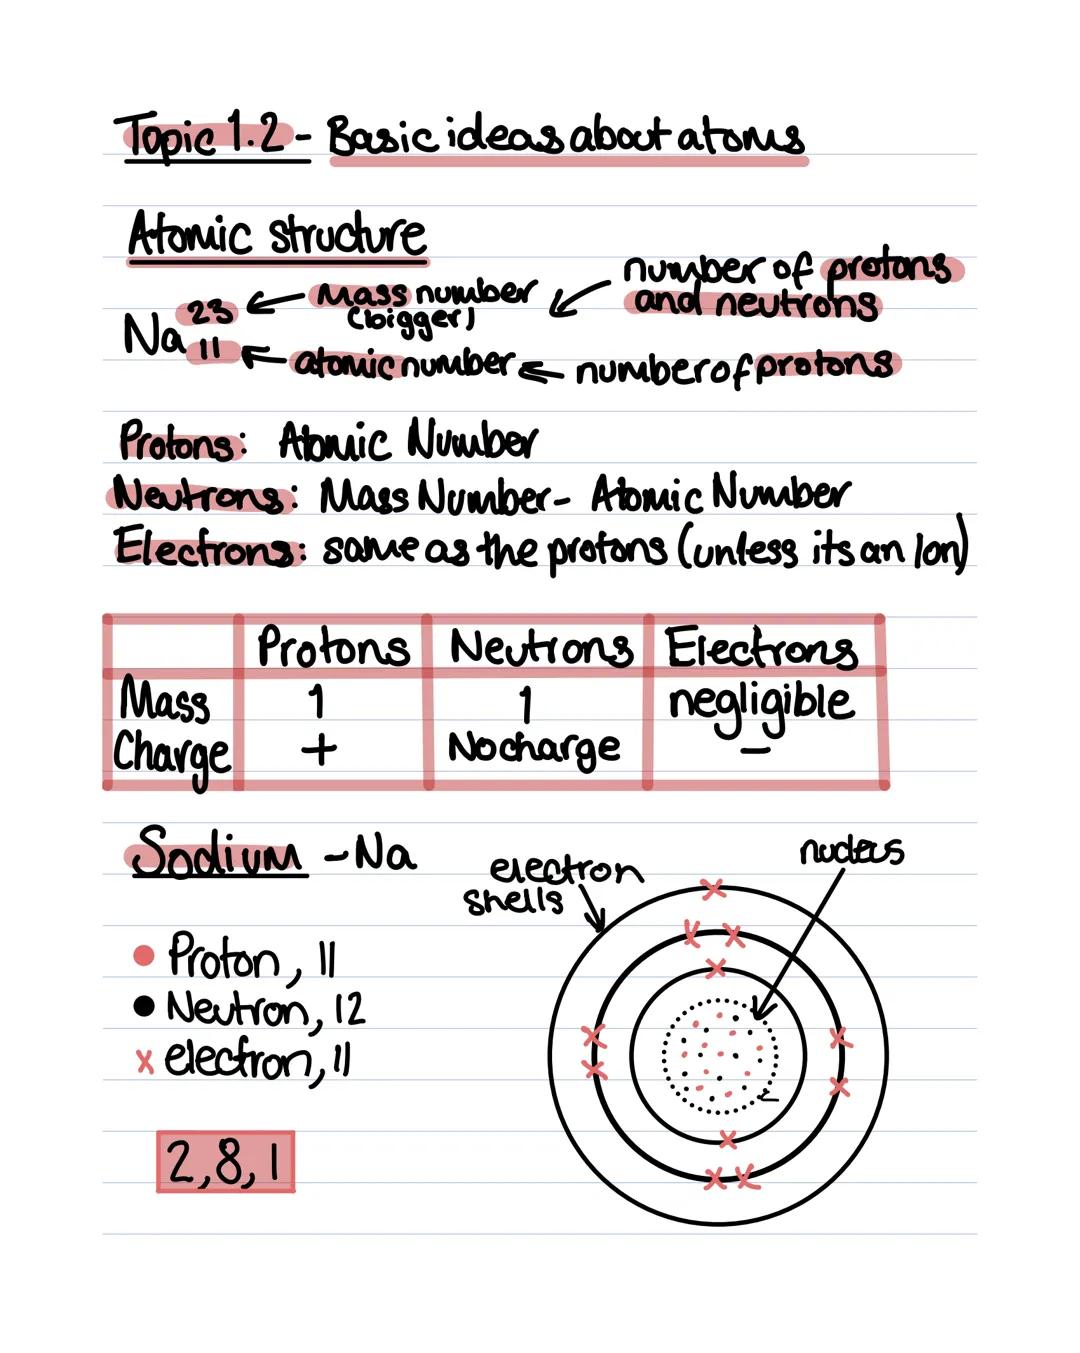 Topic 1.2 - Basic ideas about atoms
Atomic structure
number of protons
and neutrons
23 Mass number
(bigger)
Na
11 atomic number number of protons
Protons: Atomic Number
Neutrons: Mass Number - Atomic Number
Electrons: same as the protons (unless its an Ion)
Protons Neutrons Electrons
Mass 1 1 negligible
Charge + No charge -
Sodium - Na
electron
shells
nucleus
Proton, 11
Neutron, 12
x electron, 11
2,8,1